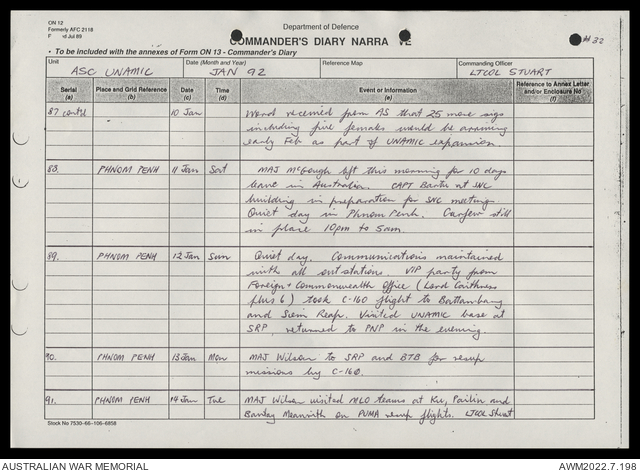 ON 12
Formerly AFC 2118
Jul 89
Department of Defence
COMMANDER'S DIARY NARRA VE
# 32
• To be included with the annexes of Form ON 13 - Commander's Diary
Unit
ASC UNAMIC
Date (Month and Year)
JAN 92
Reference Map
Commanding Officer
LTCOL STUART
Serial (a)
Place and Grid Reference (b)
Date (c)
Time (d)
Event or Information (e)
Reference to Annex Letter and/or Enclosure No (f)
87 contd 10 Jan Word received from AS that 25 more sigs
including five females would be arriving
early Feb as part of UNAMIC expansion.
88. PHNOM PENH 11 Jan Sat MAJ McGough left this morning for 10 days
leave in Australia. CAPT at SNC
building in preparation for SNC meeting.
Quiet day in Phnom Penh. Curfew still
in place 10pm to 5am.
89. PHNOM PENH 12 Jan Sun Quiet day. Communications maintained
with all outstations. VIP party from
Foreign + Commonwealth Office (Lord Caithness
plus 6) took C-160 flight to Battambang
and Siem Reap. Visited UNAMIC base at
SRP, returned to PNP in the evening.
90. PHNOM PENH 13 Jan Mon MAJ Wilson to SRP and BTB for resup
missions by C-160.
91. PHNOM PENH 14 Jan Tue MAJ Wilson visited MLO teams at Pailin and
Meanwith on PUMA resup flights. LTCOL Stuart
Stock No 7530-66-106-6858
AUSTRALIAN WAR MEMORIAL
AWM2022.7.198